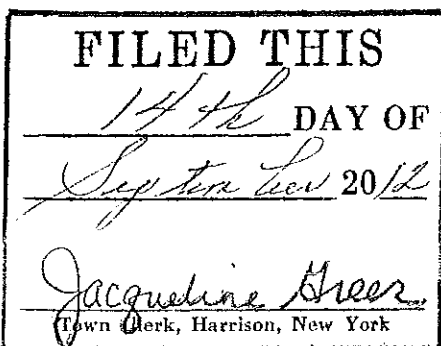 FILED THIS
14th DAY OF
September 2012
Jacqueline Greer
Town Clerk, Harrison, New York